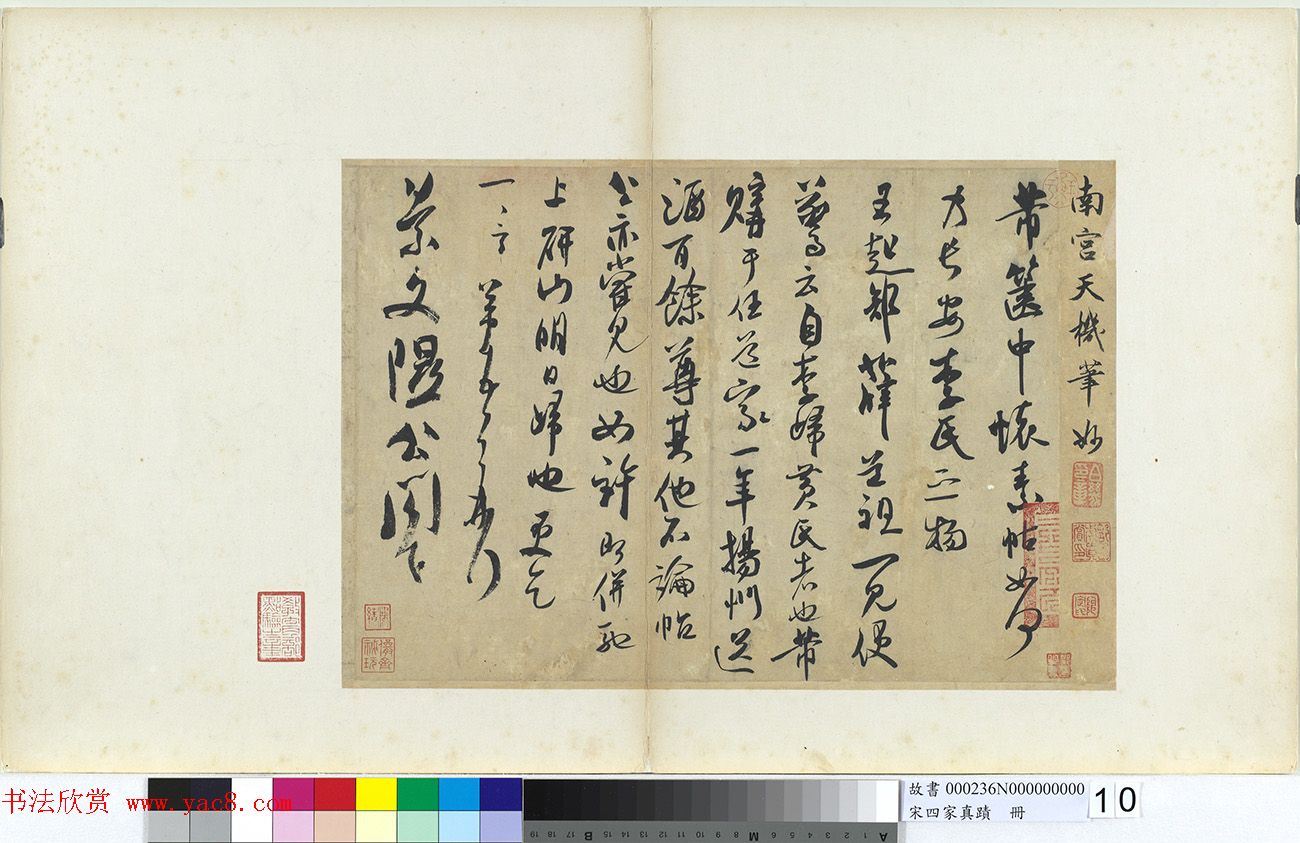 南宫天機筆妙
芾篋中懷素帖如何
乃長安李氏之物
王起部薛道祖一見便
驚云自李歸黃氏者也芾
購于任道家一年揚州送
酒百餘尊其他不論帖
公亦嘗見也如許即併馳
上研山明日歸也更乞
一言 芾頓首再拜
景文隰公閣下
书法欣赏 www.yac8.com
故書 000236N000000000
宋四家真蹟 冊
10